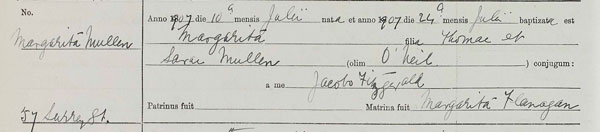 No.
Anno 1907 die 10ª mensis Julii nata et anno 1907 die 24ª mensis Julii baptizata est
Margarita Mullen
Margarita filia Thomae et
Sarae Mullen (olim O'Neil) conjugum:
a me Jacobo Fitzgerald
Patrinus fuit Matrina fuit Margarita Flanagan
57 Surrey St.